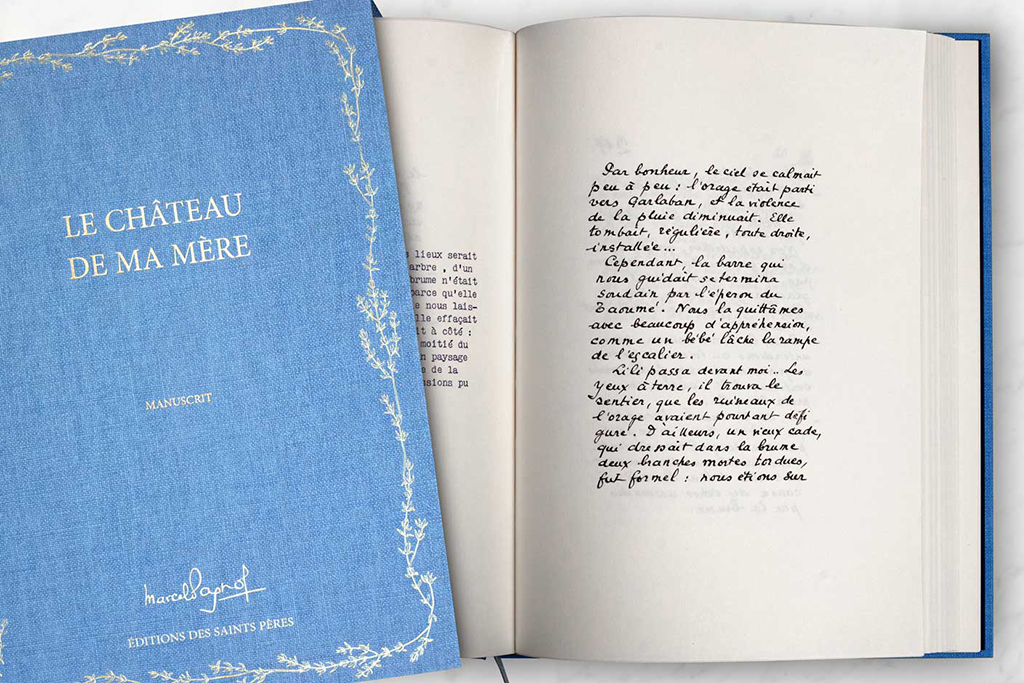 LE CHÂTEAU
DE MA MÈRE
MANUSCRIT
Marcel Pagnol
ÉDITIONS DES SAINTS PÈRES
s lieux serait
arbre , d'un
brume n'était
parce qu'elle
e nous lais-
lle effaçait
it à côté :
moitié du
n paysage
e de la
nsions pu
Par bonheur, le ciel se calmait
peu à peu : l'orage était parti
vers Garlaban, et la violence
de la pluie diminuait. Elle
tombait, régulière, toute droite,
installée...
Cependant, la barre qui
nous guidait se termina
soudain par l'éperon du
Taoumé. Nous la quittâmes
avec beaucoup d'appréhension,
comme un bébé lâche la rampe
de l'escalier.
Lili passa devant moi.. Les
yeux à terre, il trouva le
sentier, que les ruisseaux de
l'orage avaient pourtant défi
guré. D'ailleurs, un vieux cade,
qui dressait dans la brume
deux branches mortes tordues,
fut formel : nous étions sur